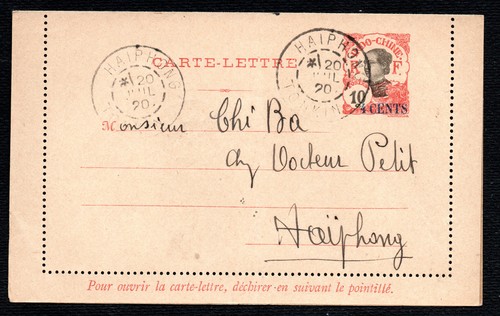 HAIPHONG
20
JUIL
20
HAIPHONG
TONKIN
20
JUIL
20
INDO-CHINE
R F.
CARTE-LETTRE
10
4 CENTS
Monsieur Chi Ba
chez Docteur Petit
Haiphong
Pour ouvrir la carte-lettre, déchirer-en suivant le pointillé.